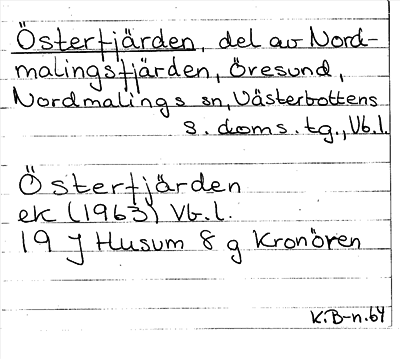 Österfjärden, del av Nord-
malingsfjärden, Öresund,
Nordmalings sn, Västerbottens
s. doms. tg., Vb.l.
Österfjärden
ek (1963) Vb.l.
19 J Husum 8 g Kronören
K.B-n.64